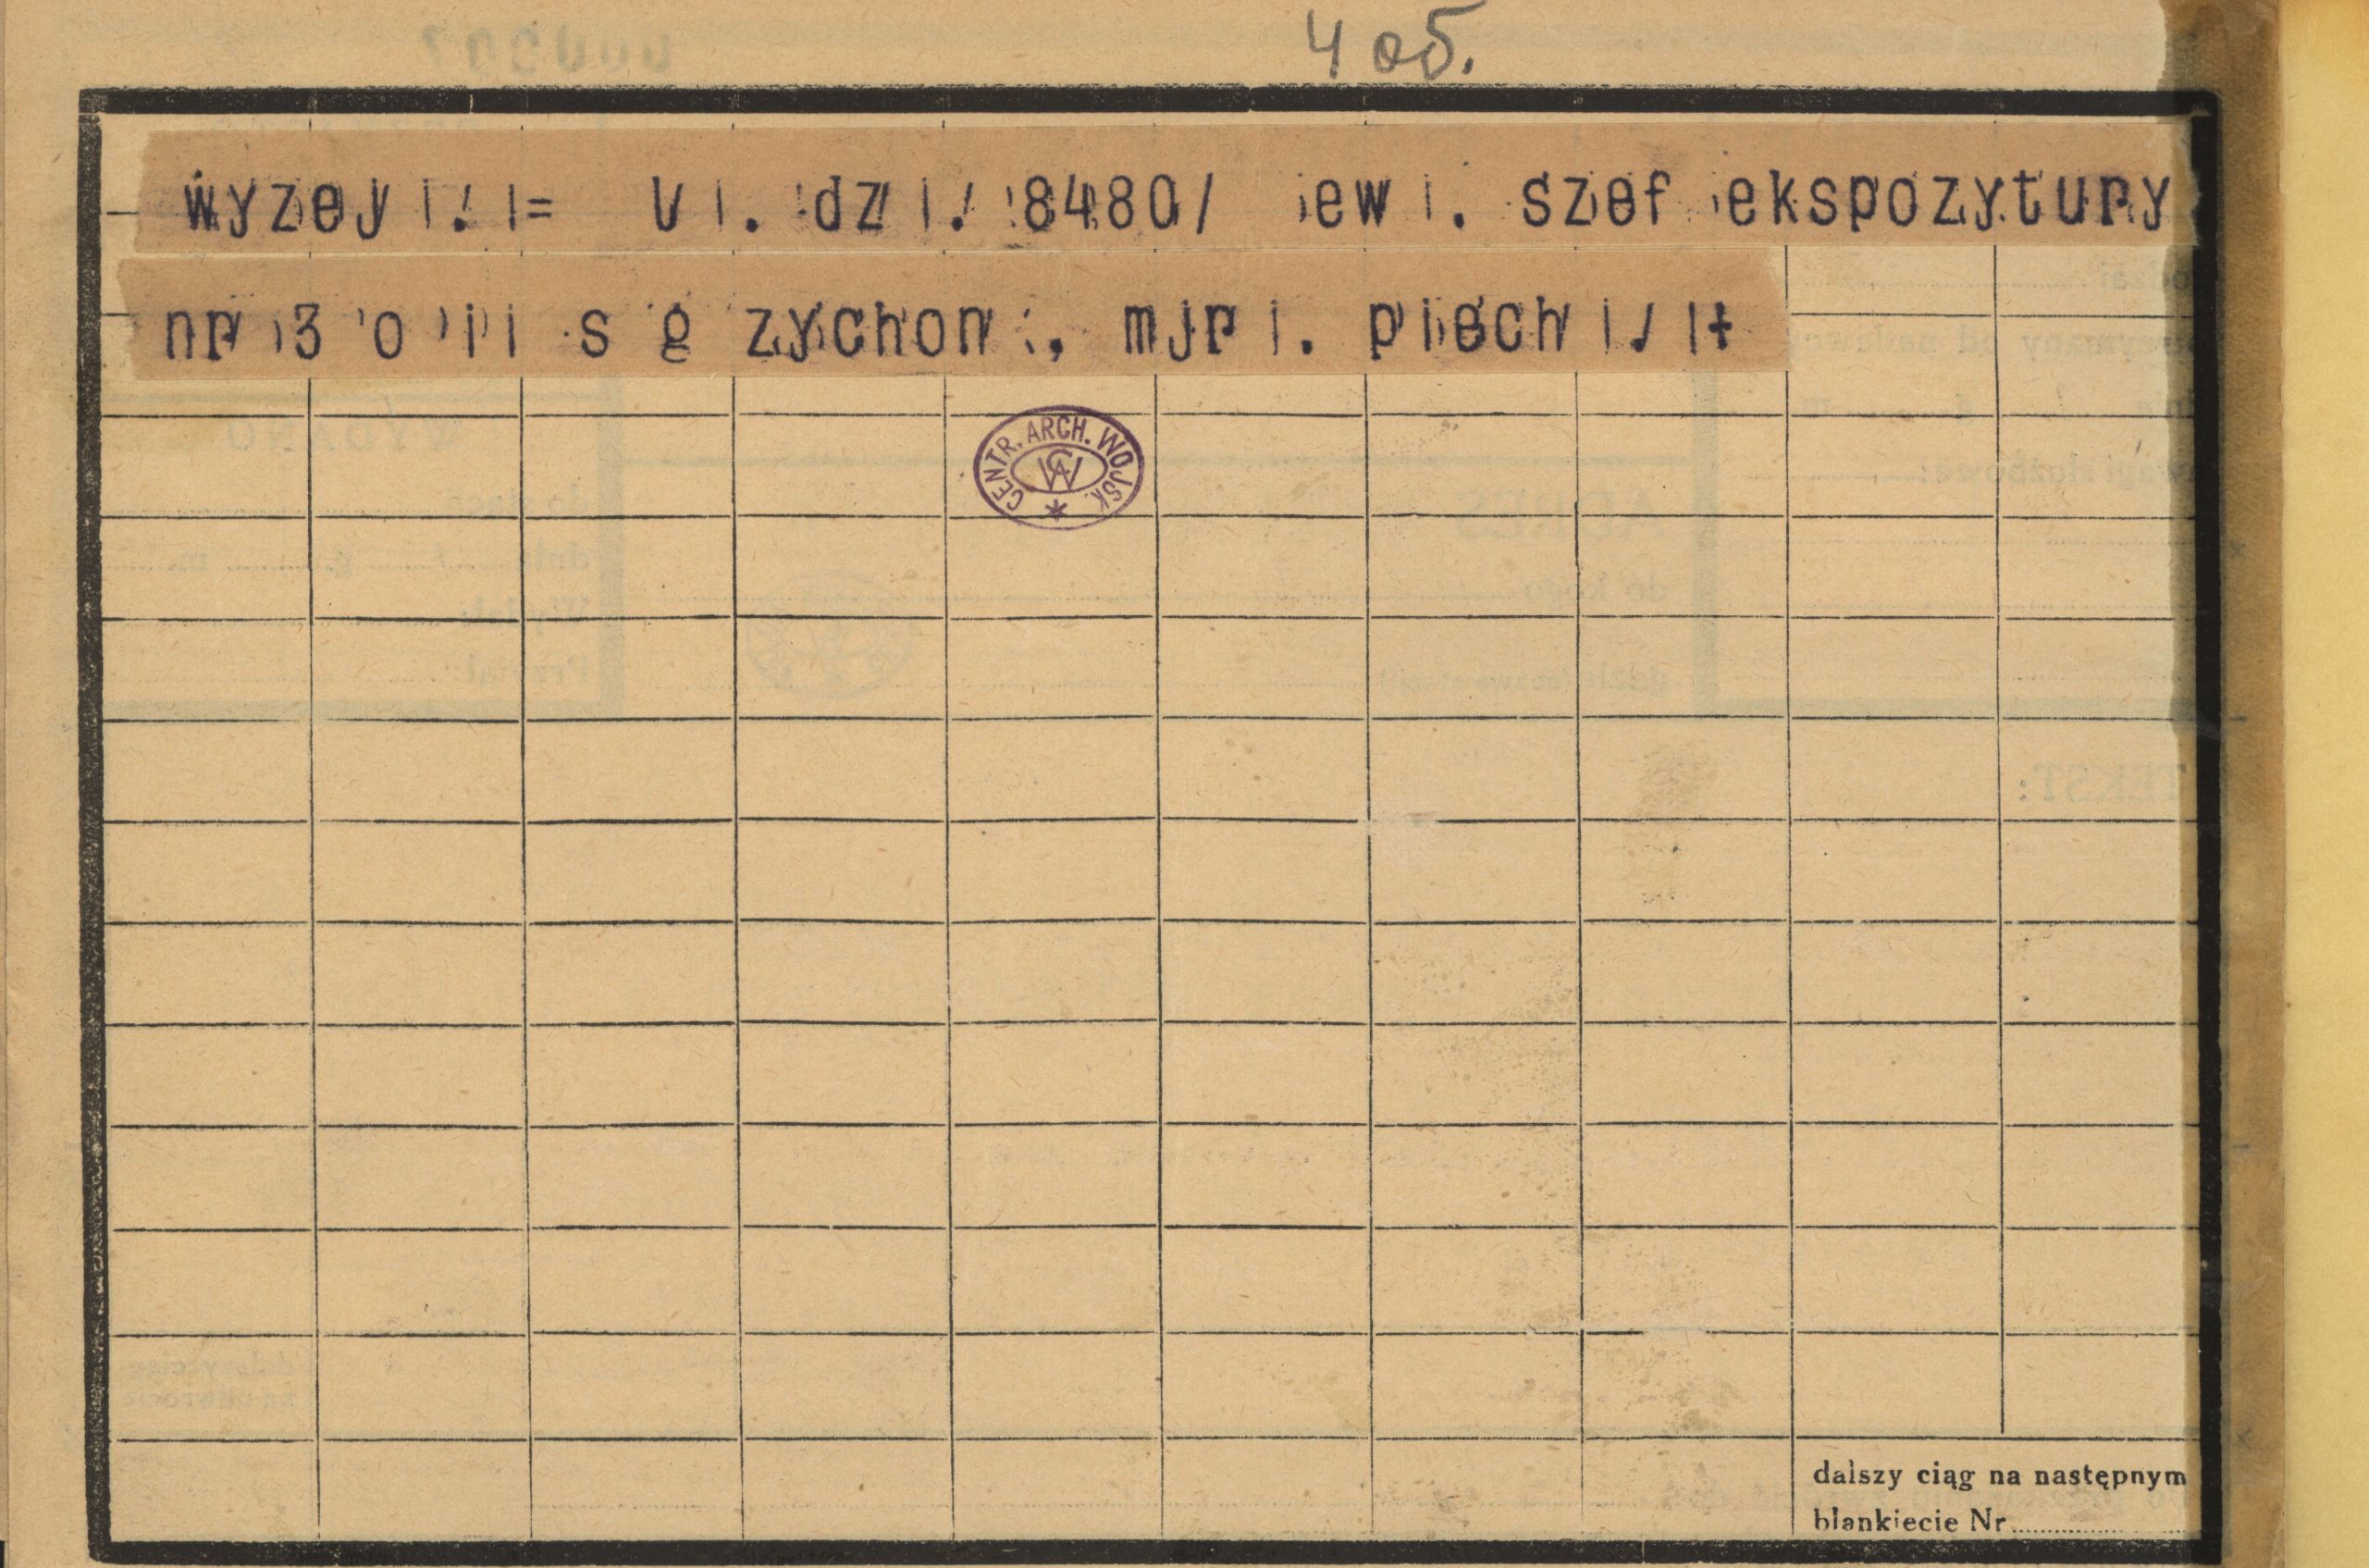 4 об.
wyzej . = l . dz . 8480/ ew . szef ekspozytury
nr 3 o ii s g zychon . mjr . piech . +
CENTR. ARCH. WOJSK.
CAW
dalszy ciąg na następnym
blankiecie Nr